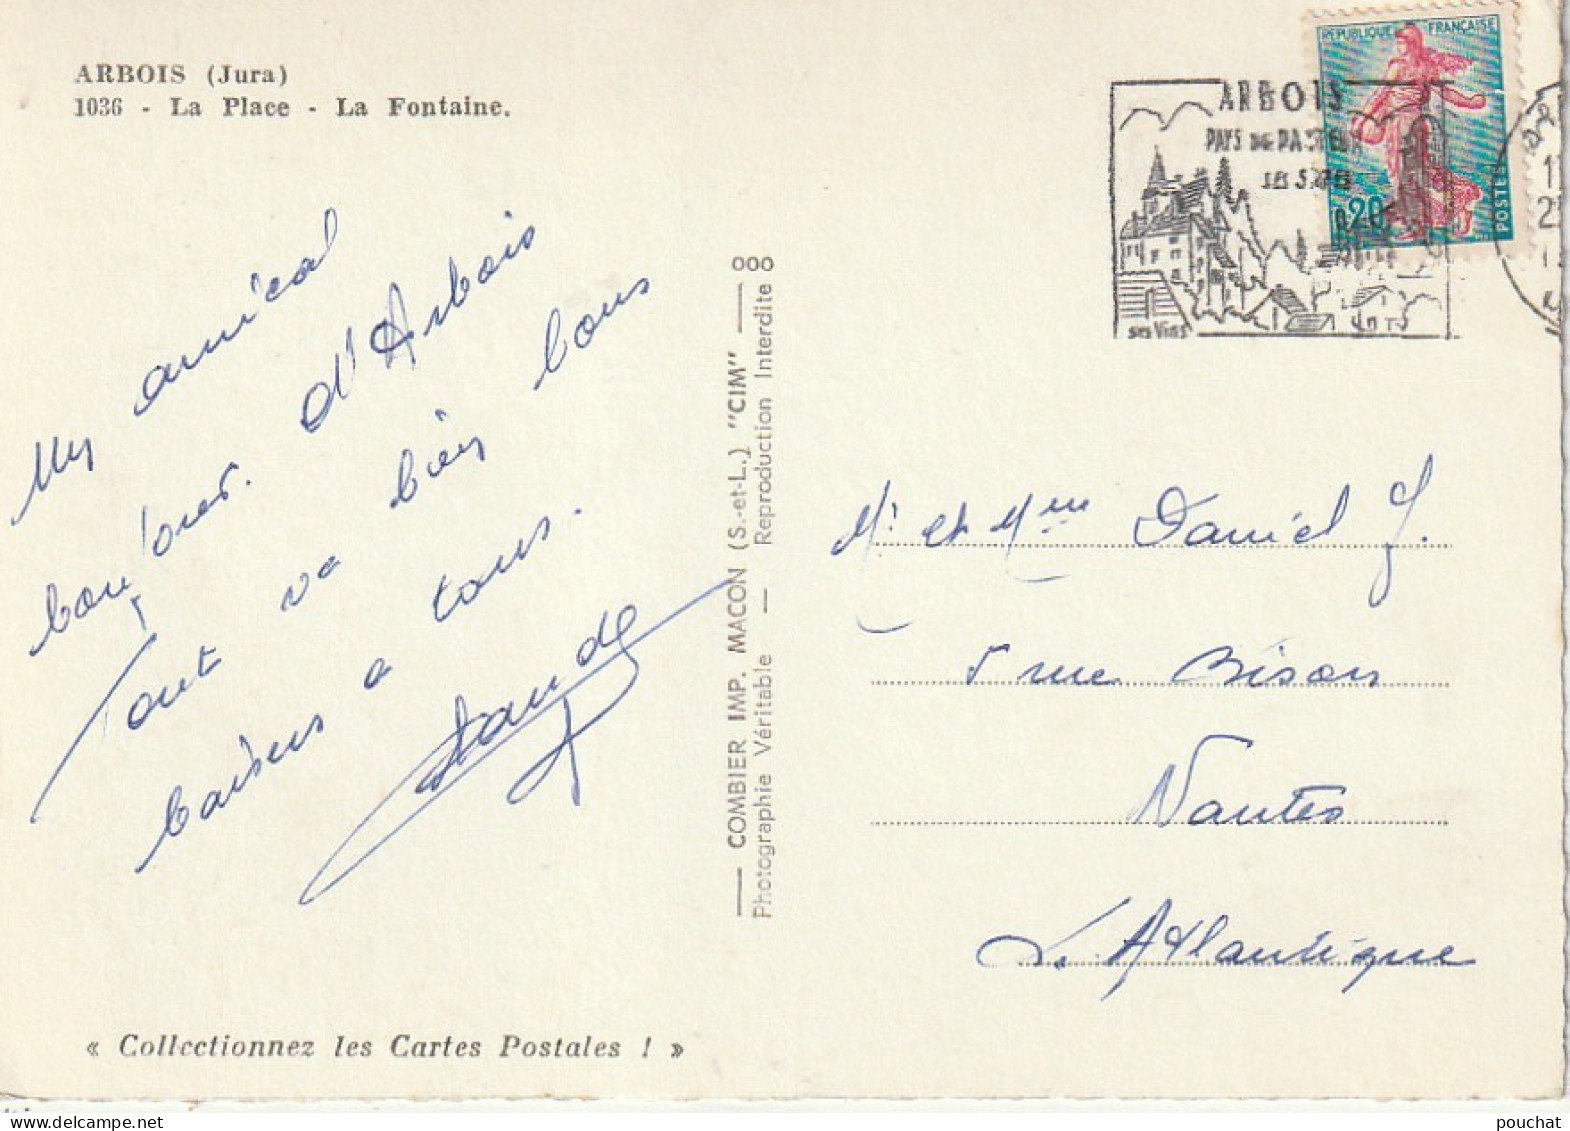 ARBOIS (Jura)
1036 - La Place - La Fontaine.
Un amical
bonjour d'Arbois
Tout va bien bons
baisers a tous.
COMBIER IMP. MACON (S.-et-L.) "CIM"
Photographie Véritable — Reproduction Interdite
« Collectionnez les Cartes Postales ! »
ARBOIS
PAYS DE PASTEUR
SES VINS
REPUBLIQUE FRANÇAISE
0,20
POSTES
Mr et Mme Daniel J.
5 rue Bison
Nantes
L. Atlantique
pouchat